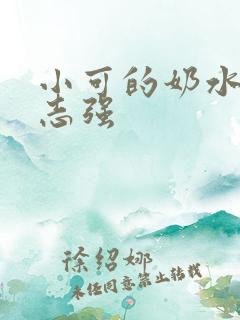 小可的奶水
志强
徐绍娜
未经同意禁止转载